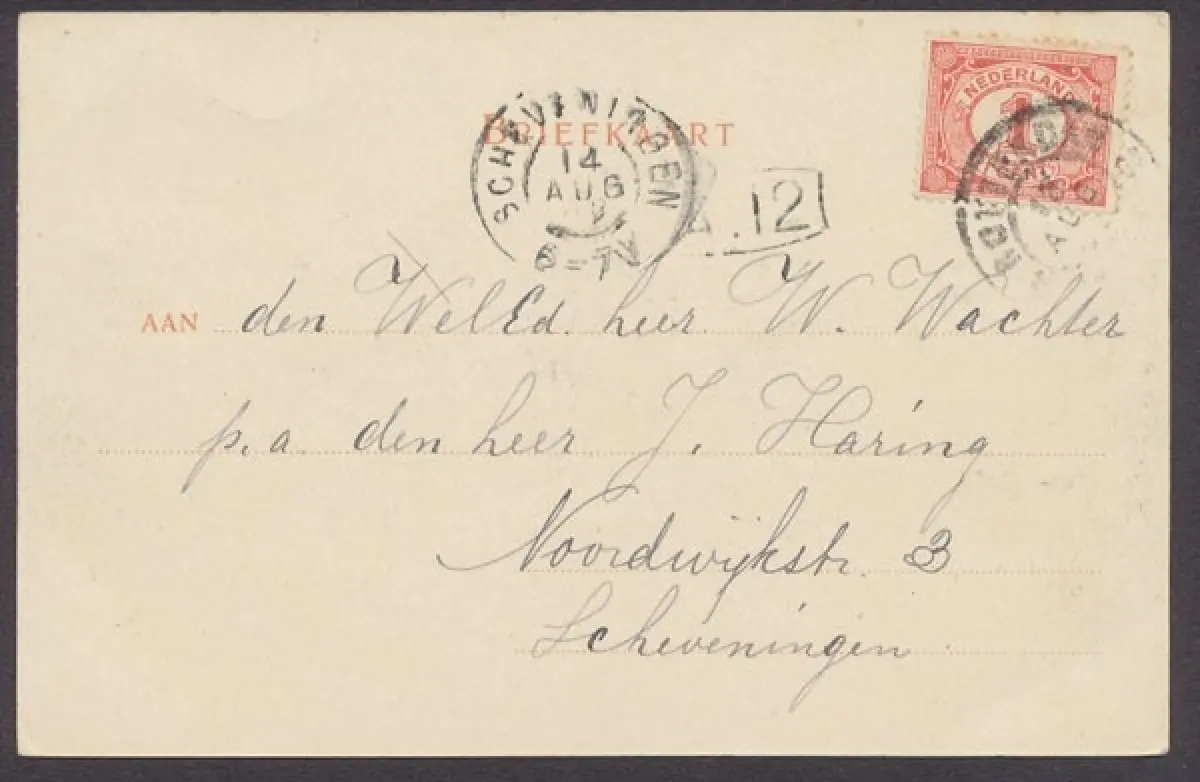 BRIEFKAART
SCHEVENINGEN
14
AUG
6-7V
12
NEDERLAND
1
AAN den WelEd. heer W. Wachter
p.a. den heer J. Haring
Noordwijkstr. 3
Scheveningen